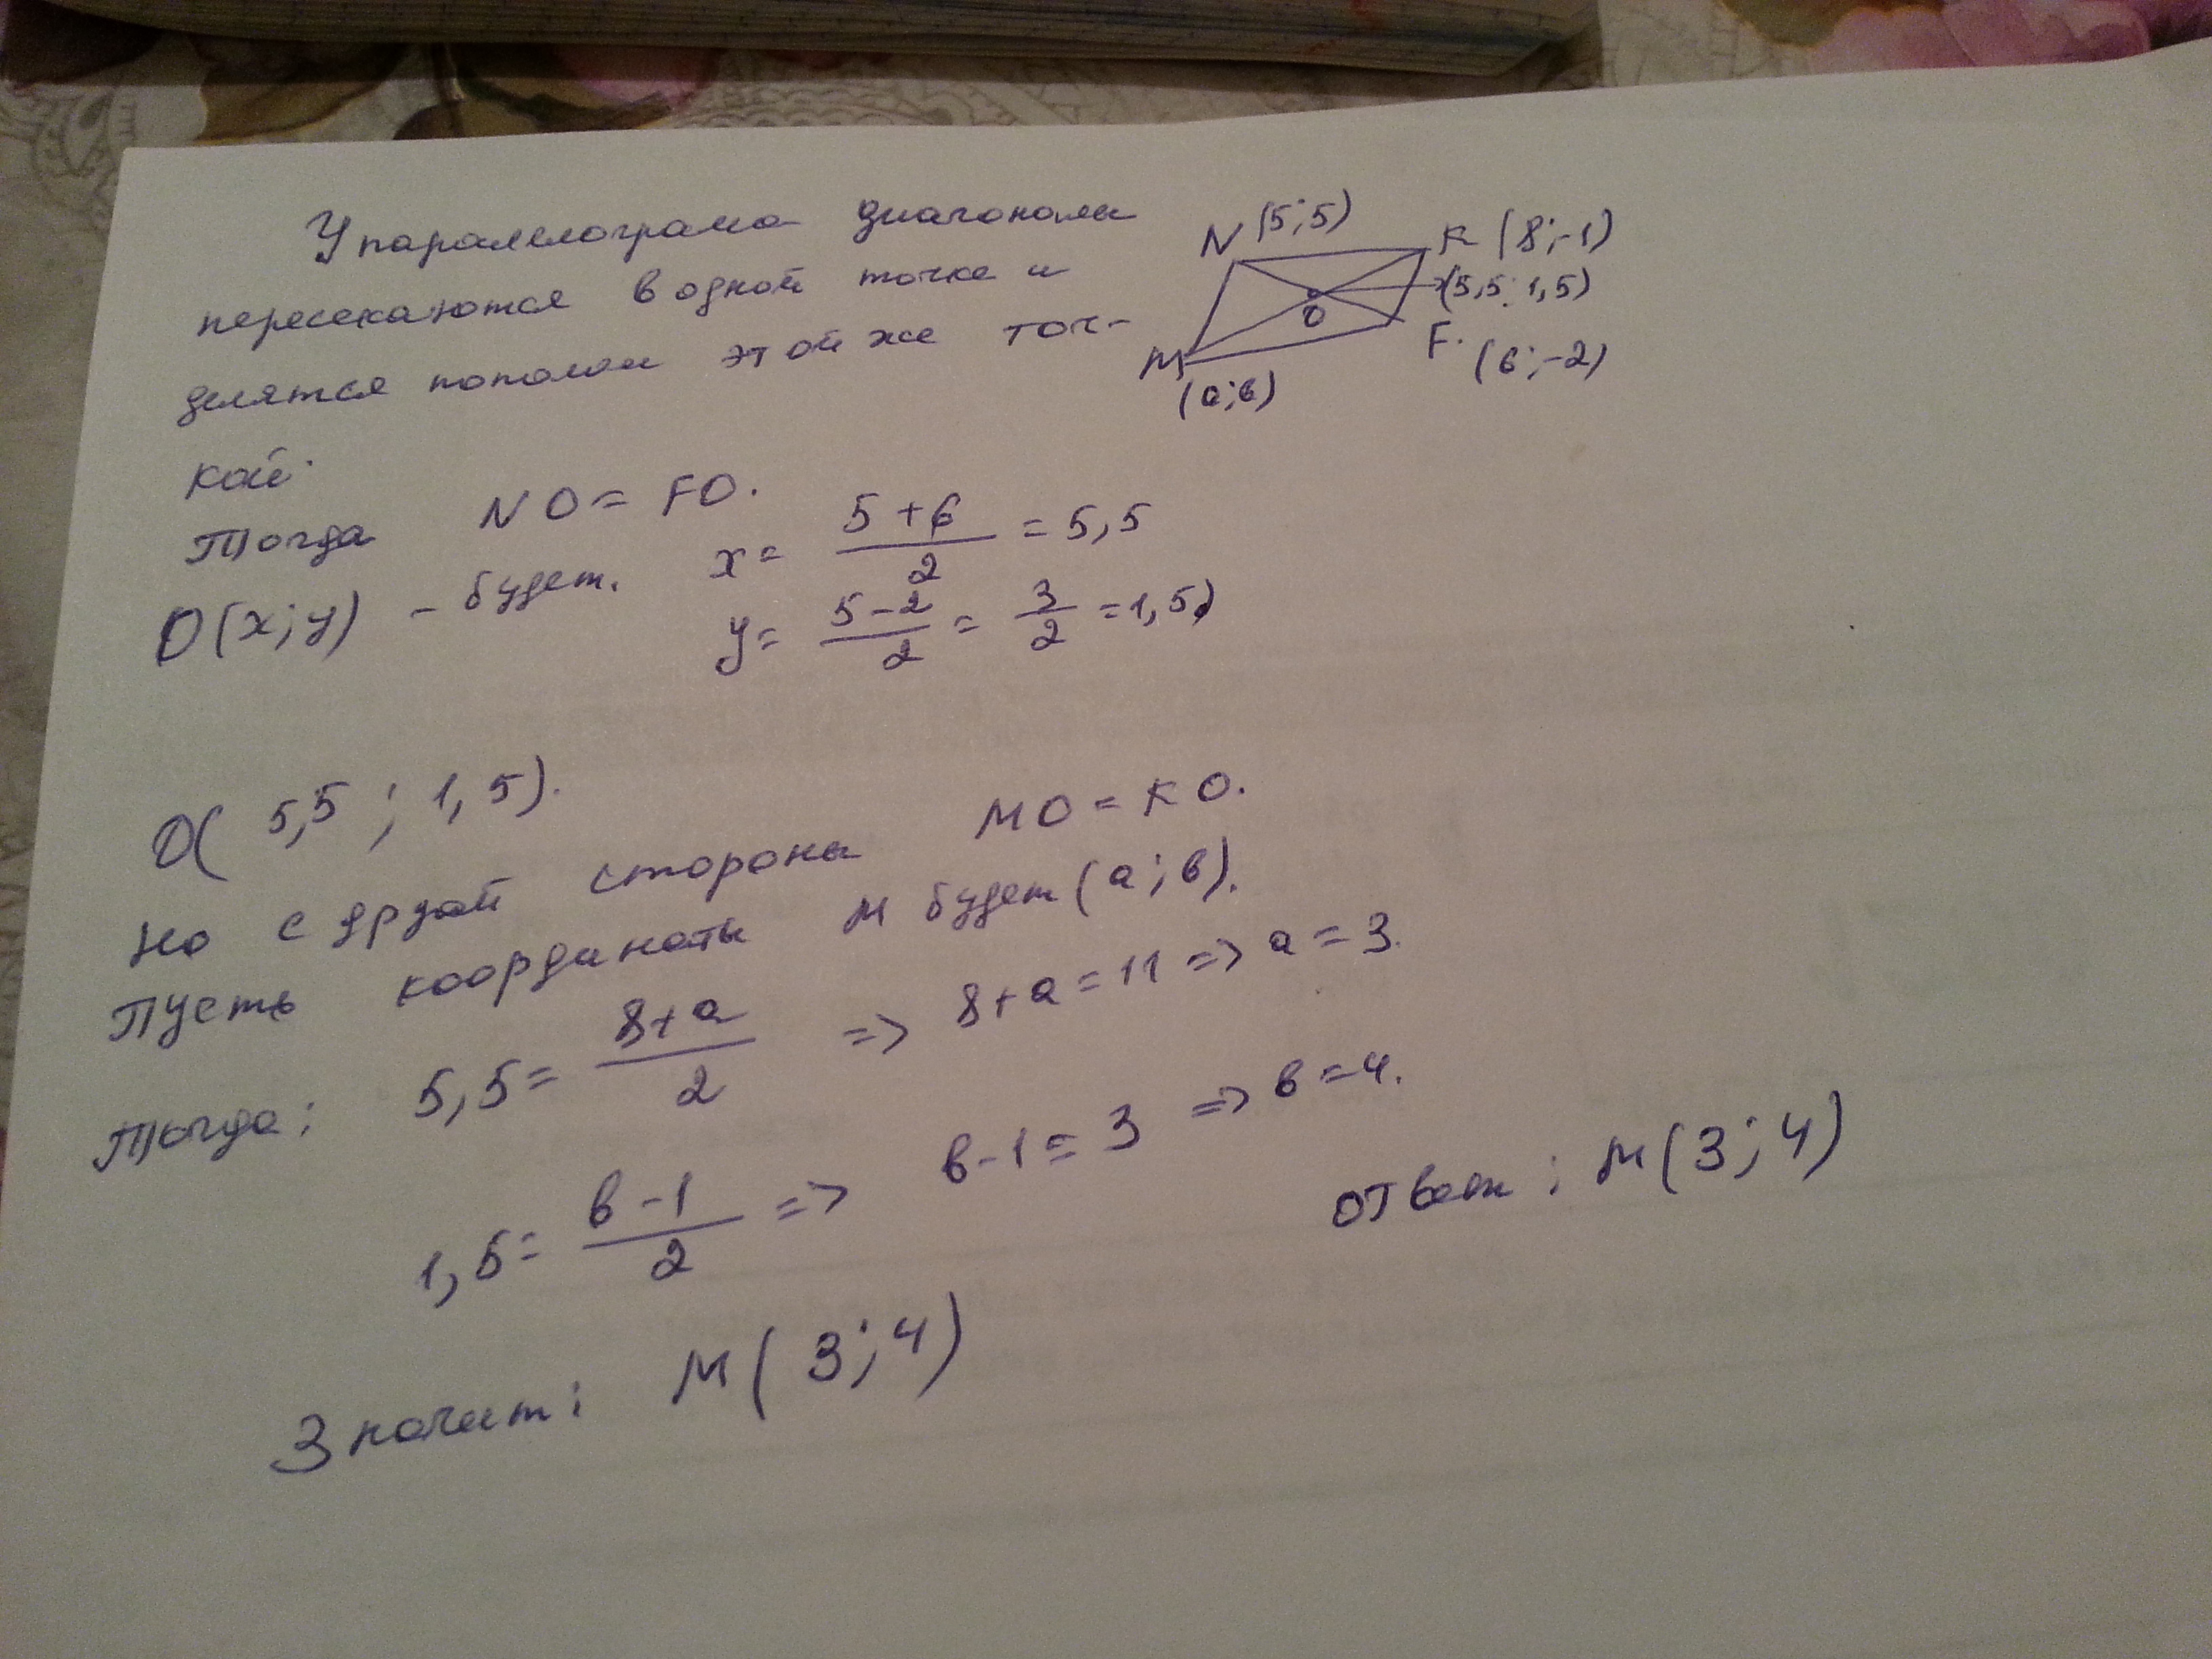 У паралелограма диагонали
пересекаются в одной точке и
делятся пополам этой же точ-
кой.
N (5;5)
K (8;-1)
(5,5; 1,5)
O
F. (6;-2)
M
(a;в)
Тогда NO = FO.
O(x;y) - будет. x = 5+6/2 = 5,5
y = 5-2/2 = 3/2 = 1,5
O( 5,5 ; 1,5).
Но с друой стороны MO = KO.
Пусть координаты M будет (a;в).
Тогда: 5,5 = 8+a/2 => 8+a = 11 => a = 3.
1,5 = в-1/2 => в-1 = 3 => в = 4.
Ответ: M(3;4)
Значит: M(3;4)